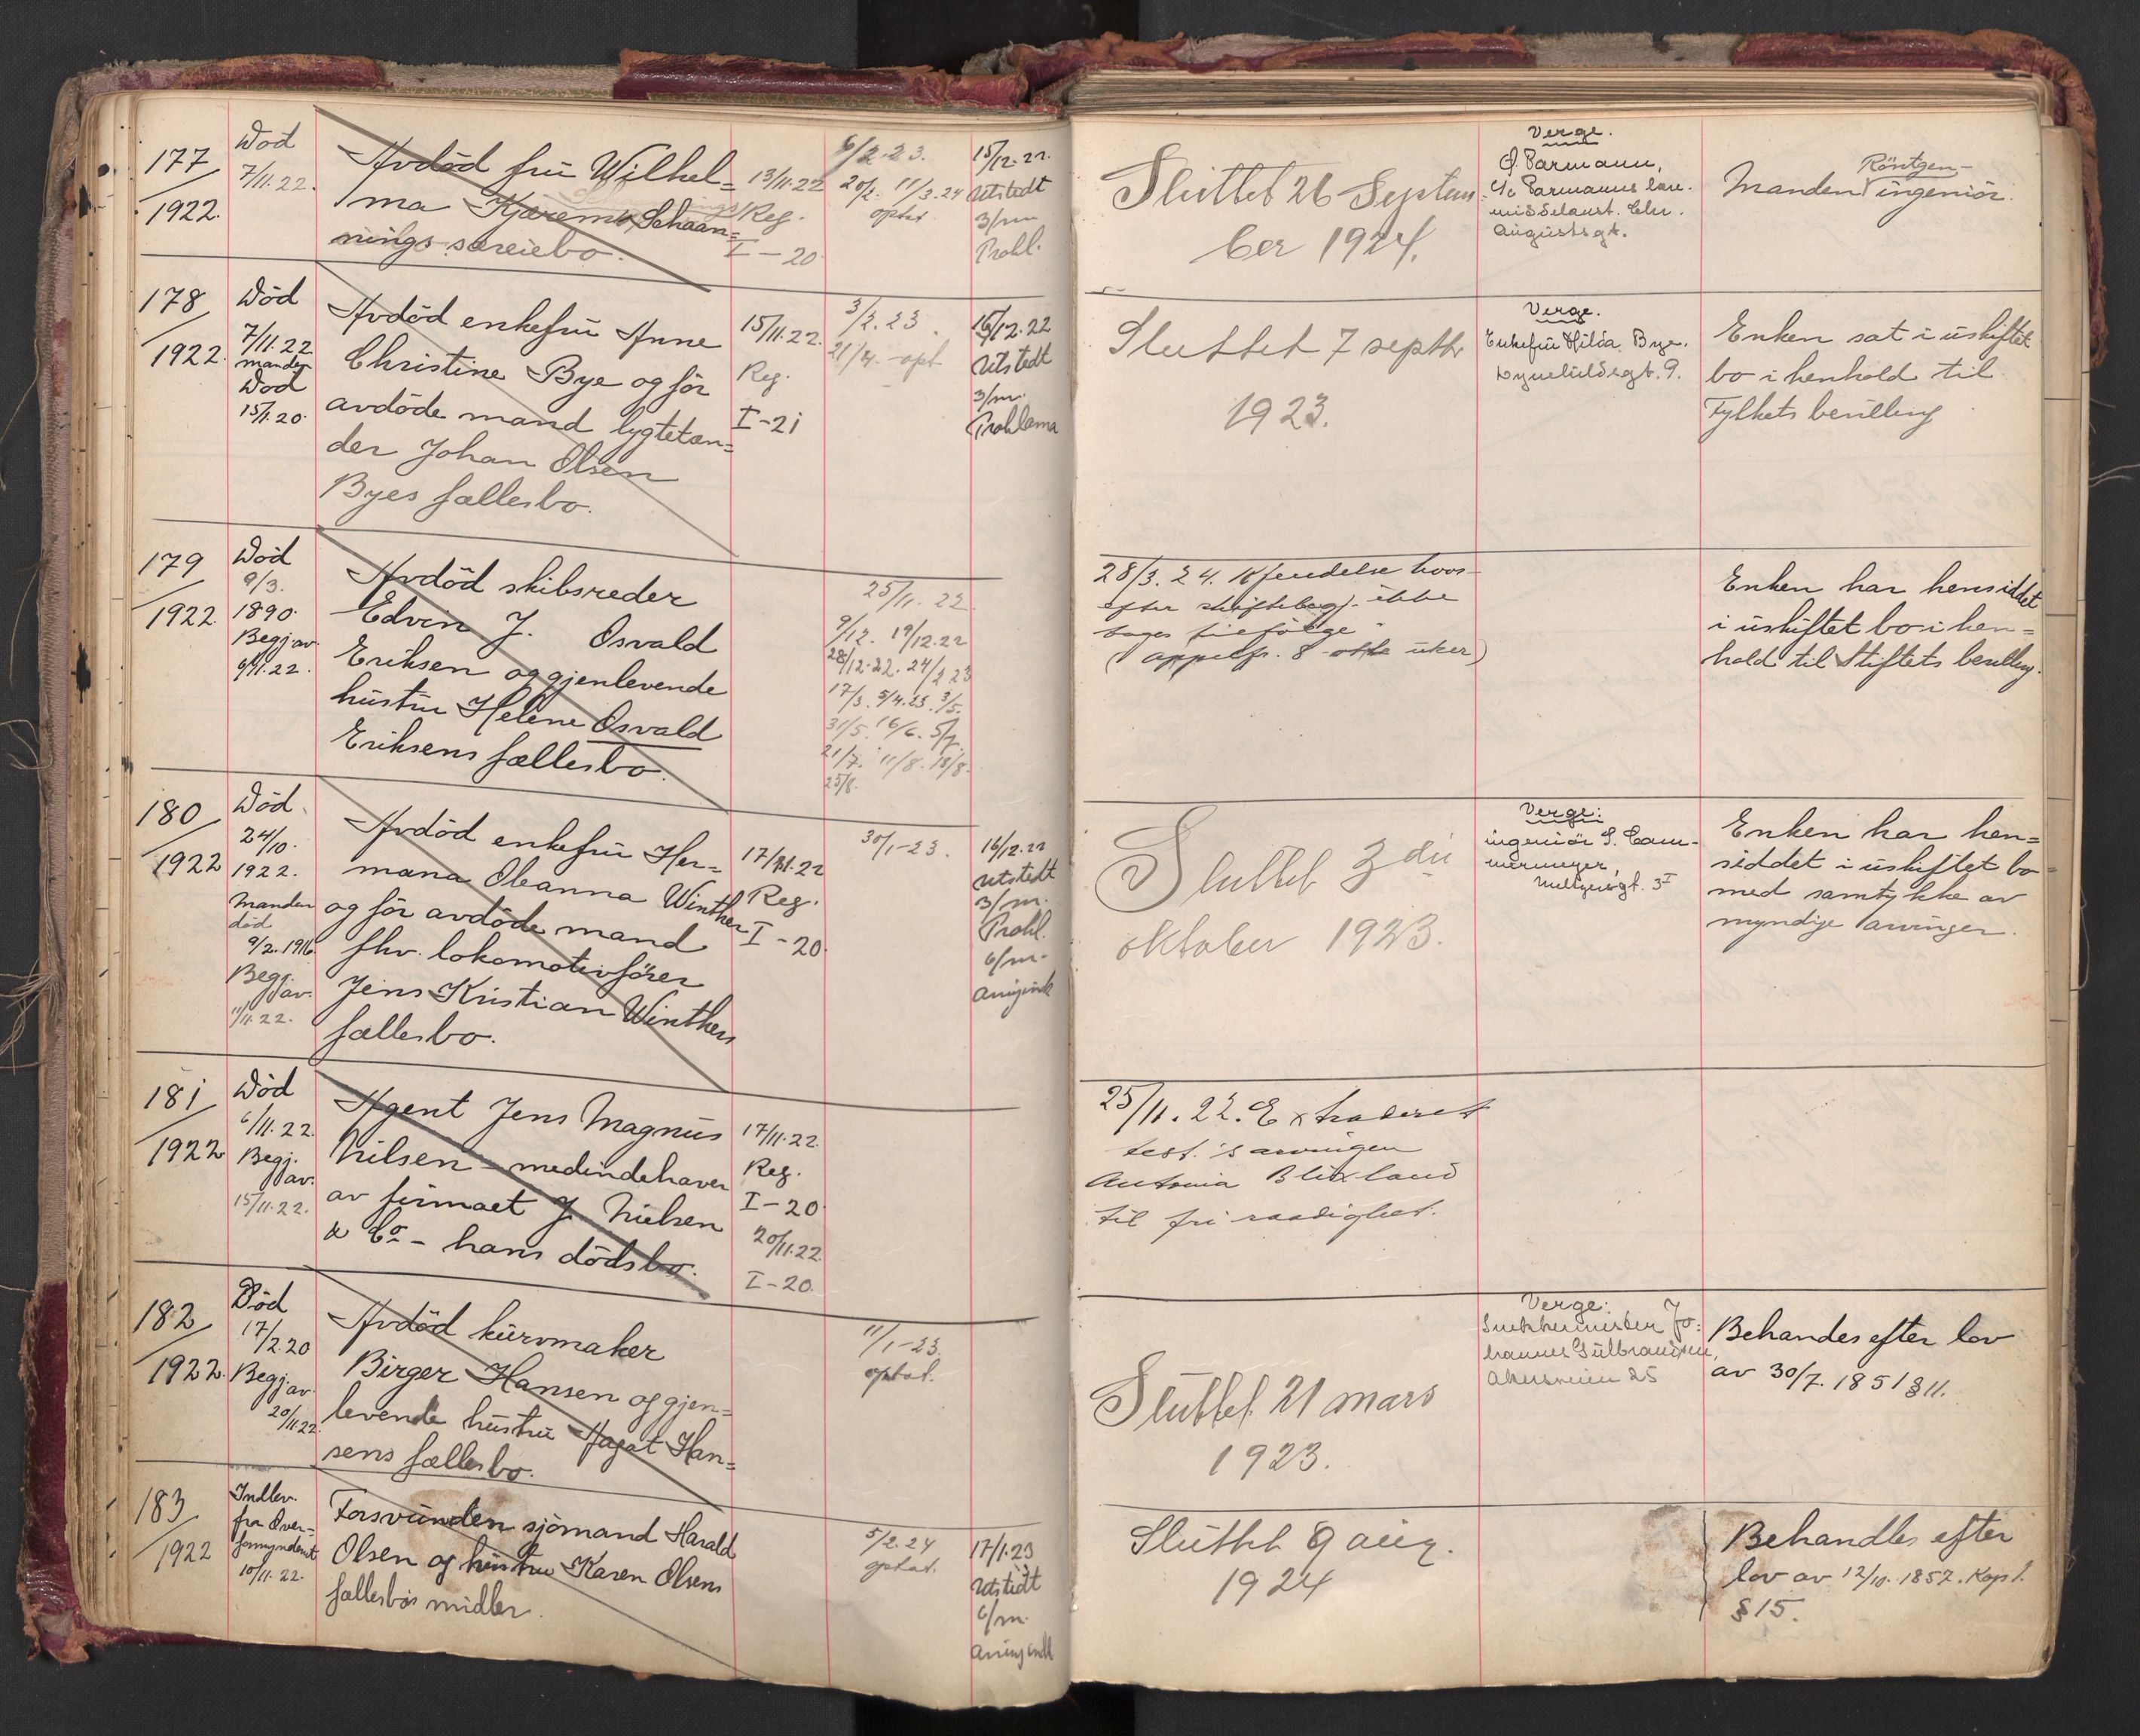 177
1922.
Död
7/11.22.
Avdöd frü Wilhel=
ma Kjærems Schaan=
nings særeiebo.
13/11.22
Reg.
I-20
6/2.23.
20/2. 11/3.24
optat
15/12.22.
Utstedt
3/m
Prokl.
Slüttet 26 Septem
ber 1924.
Verge.
Augüstsgt.
Röntgen-
Manden ingeniör.
178
1922.
Död
7/11.22
manden
Död
15/1.20.
Avdöd enkefrü Anne
Christine Bye og för
avdöde mand lygtetæn=
der Johan Olsen
Byes fællesbo.
15/11.22.
Reg.
I-21
3/2.23.
21/4.-opt.
16/12.22
Utstedt
3/m.
Proklama
Sluttet 7 septbr
1923.
Verge.
Enkefrü Hilda Bye.
Enken sat i üskiftet
bo i henhold til
Fylkets bevilling
179
1922
Död
9/3.
1890.
Begj. av
6/11.22.
Avdöd skibsreder
Edvin J. Osvald
Eriksen og gjenlevende
hüstrü Helene Osvald
Eriksens fællesbo.
25/11.22.
9/12. 19/12.22
28/12.22. 24/2 23
17/3. 5/4.23. 3/5.
31/5. 16/6. 5/7.
21/7. 11/8. 18/8.
25/8.
28/3.24. Kjendelse hvor-
efter skiftebegj. ikke
tages tilfölge
(appelfr. 8 otte uker)
Enken har hensiddet
i üskiftet bo i hen=
hold til Stiftets bevilling.
180
1922
Död
24/10.
1922.
Manden
död
9/2.1916.
Begj.
av.
11/11.22.
Avdöd enkefrü Her=
mana Oleanna Winther
og för avdöde mand
fhv. lokomotivförer
Jens Kristian Winthers
fællesbo.
17/11.22
Reg.
I-20.
30/1-23.
16/12.22
Utstedt
3/m.
Prokl.
6/m.
arvingindk
Sluttet 3die
oktober 1923.
Verge:
ingeniör S. Cam-
mermeyer,
Meltzersgt. 3I
Enken har hen=
siddet i üskiftet bo
med samtykke av
myndige arvinger.
181
1922
Död
6/11.22.
Begj.
av.
15/11.22.
Agent Jens Magnüs
Nilsen - medindehaver
av firmaet J. Nielsen
& Co - hans dödsbo.
17/11.22.
Reg.
I-20
20/11.22.
I-20.
25/11.22. Extraderet
test.'s arvingen
Antonia Blixland
til fri raadighet.
182
1922.
Död
17/2.20
Begj. av
20/11.22.
Avdöd kürvmaker
Birger Hansen og gjen=
levende hüstrü Hagat Han=
sens fællesbo.
11/1-23.
optat.
Slüttet 21 mars
1923.
Verge:
Snekkermester Jo=
hannes Gülbrandsen,
Akersveien 25
Behandes efter lov
av 30/7. 1851 § 11.
183
1922
Indlev.
fra Over=
formynderiet
10/11.22.
Forsvünden sjömand Harald
Olsen og hüstrü Karen Olsens
fællesbos midler.
5/2.24
optat.
17/1.23
Utstedt
6/m.
arvingindk
Slüttet 9 aüg.
1924
Behandles efter
lov av 12/10. 1857. Kap 1.
§ 15.